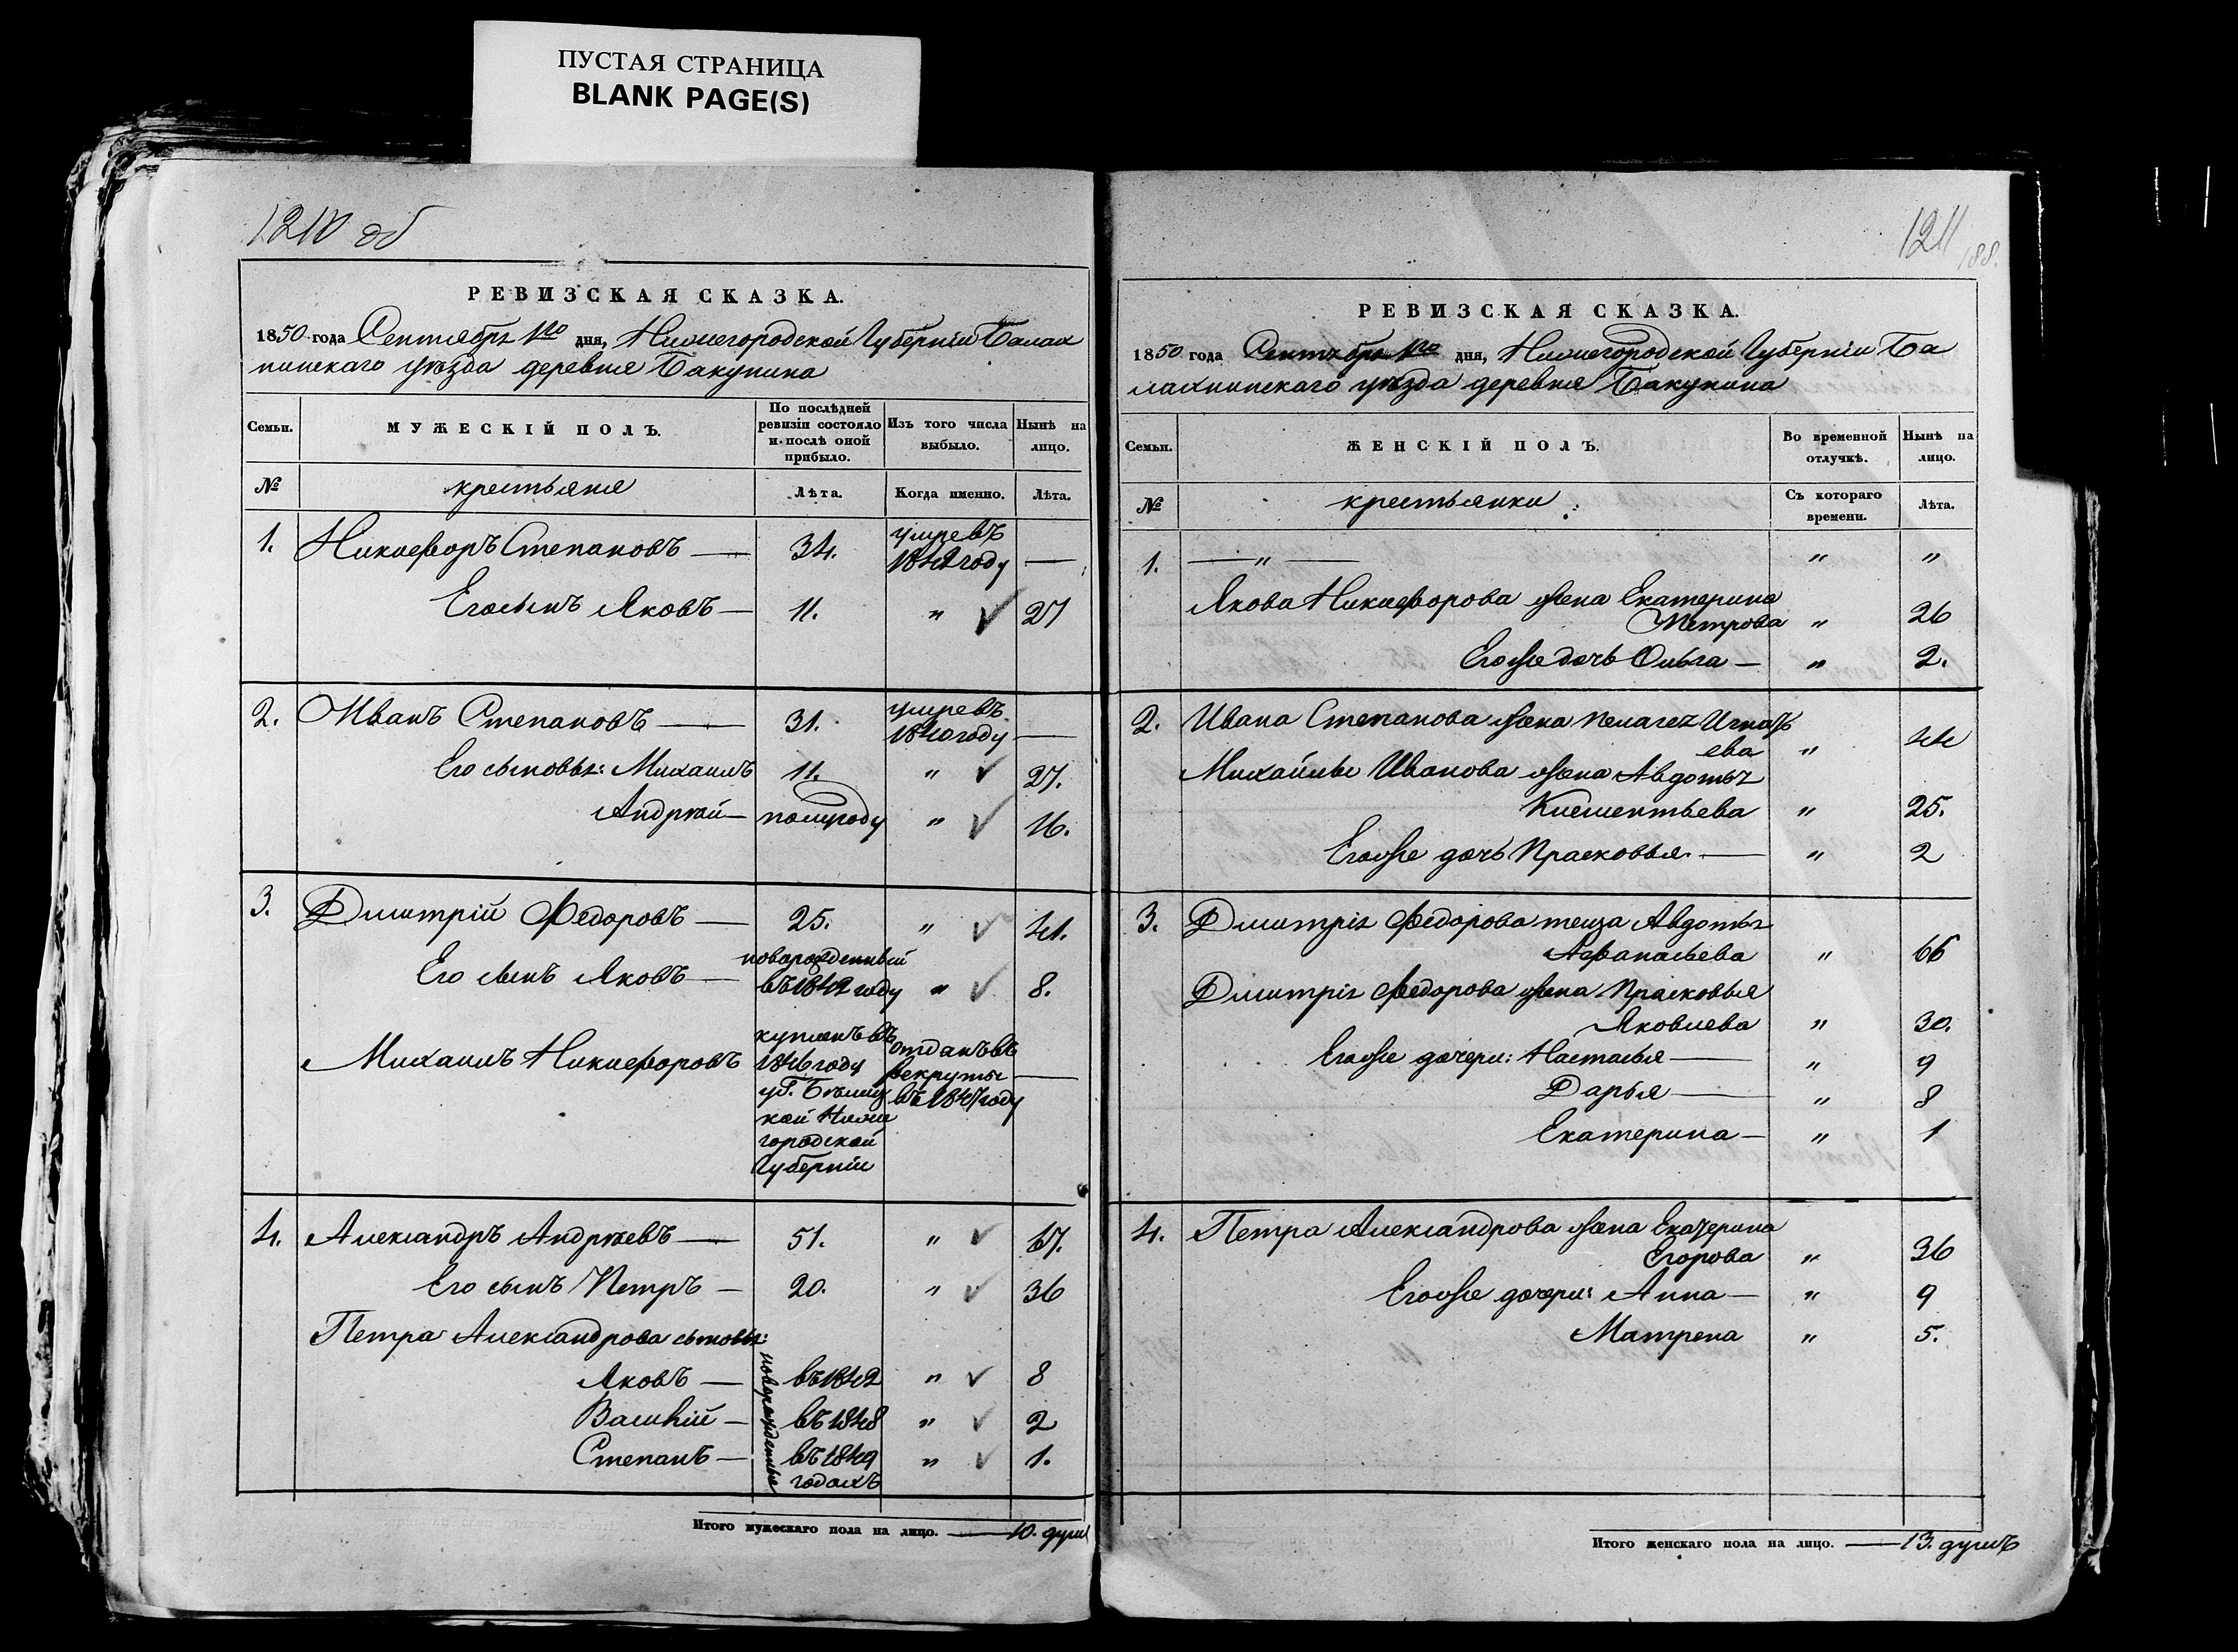 ПУСТАЯ СТРАНИЦА
BLANK PAGE(S)
1210 об
РЕВИЗСКАЯ СКАЗКА.
1850 года Сентября 1го дня, Нижегородской Губерніи Балах
нинскаго уѣзда деревне Бакунина
Семьи. МУЖЕСКІЙ ПОЛЪ. По послѣдней ревизіи состояло и послѣ оной прибыло. Изъ того числа выбыло. Нынѣ на лицо.
№ крестьяня Лѣта. Когда именно. Лѣта.
1. Никифоръ Степановъ — 34. умревъ 1842 году —
Его сынъ Яковъ — 11. " 27
2. Иванъ Степановъ — 31. умревъ 1840 году —
Его сыновья: Михаилъ 11. " 27.
Андрѣй — полугоду " 16.
3. Дмитрій Федоровъ — 25. " 41.
Его сынъ Яковъ — новорожденный въ 1842 году " 8.
Михаилъ Никифоровъ купленъ въ 1846 году у Г. отданъ въ рекруты въ 1847 году —
кой Ниже
городской
Губерніи
4. Александръ Андрѣевъ — 51. " 67.
Его сынъ Петръ — 20. " 36
Петра Александрова сыновья: новорожденные
Яковъ — въ 1842 " 8
Василій — въ 1848 " 2
Степанъ — въ 1849 " 1.
годахъ
Итого мужескаго пола на лицо. — 10. душъ
1211
188.
РЕВИЗСКАЯ СКАЗКА.
1850 года Сентября 1го дня, Нижегородской Губерніи Ба
лахнинскаго уѣзда деревне Бакунина
Семьи. ЖЕНСКІЙ ПОЛЪ. Во временной отлучкѣ. Нынѣ на лицо.
№ крестьянки Съ котораго времени. Лѣта.
1. — " — " "
Якова Никифорова жена Екатерина
Петрова " 26
Его же дочь Ольга — " 2.
2. Ивана Степанова жена Пелагея Игнать
ева " 44
Михайлы Иванова жена Авдотья
Клементьева " 25.
Его же дочь Прасковья. — " 2
3. Дмитрія Федорова теща Авдотья
Афанасьева " 66
Дмитрія Федорова жена Прасковья
Яковлева " 30.
Его же дочери: Настасья — " 9
Дарья — " 8
Екатерина — " 1
4. Петра Александрова жена Екатерина
Егорова " 36
Его же дочери: Анна — " 9
Матрена " 5.
Итого женскаго пола на лицо. — 13. душъ